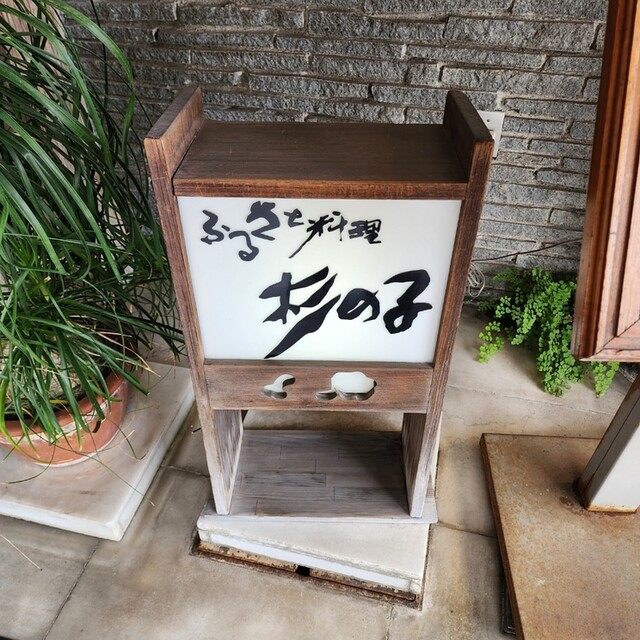 ふるさと料理
杉の子